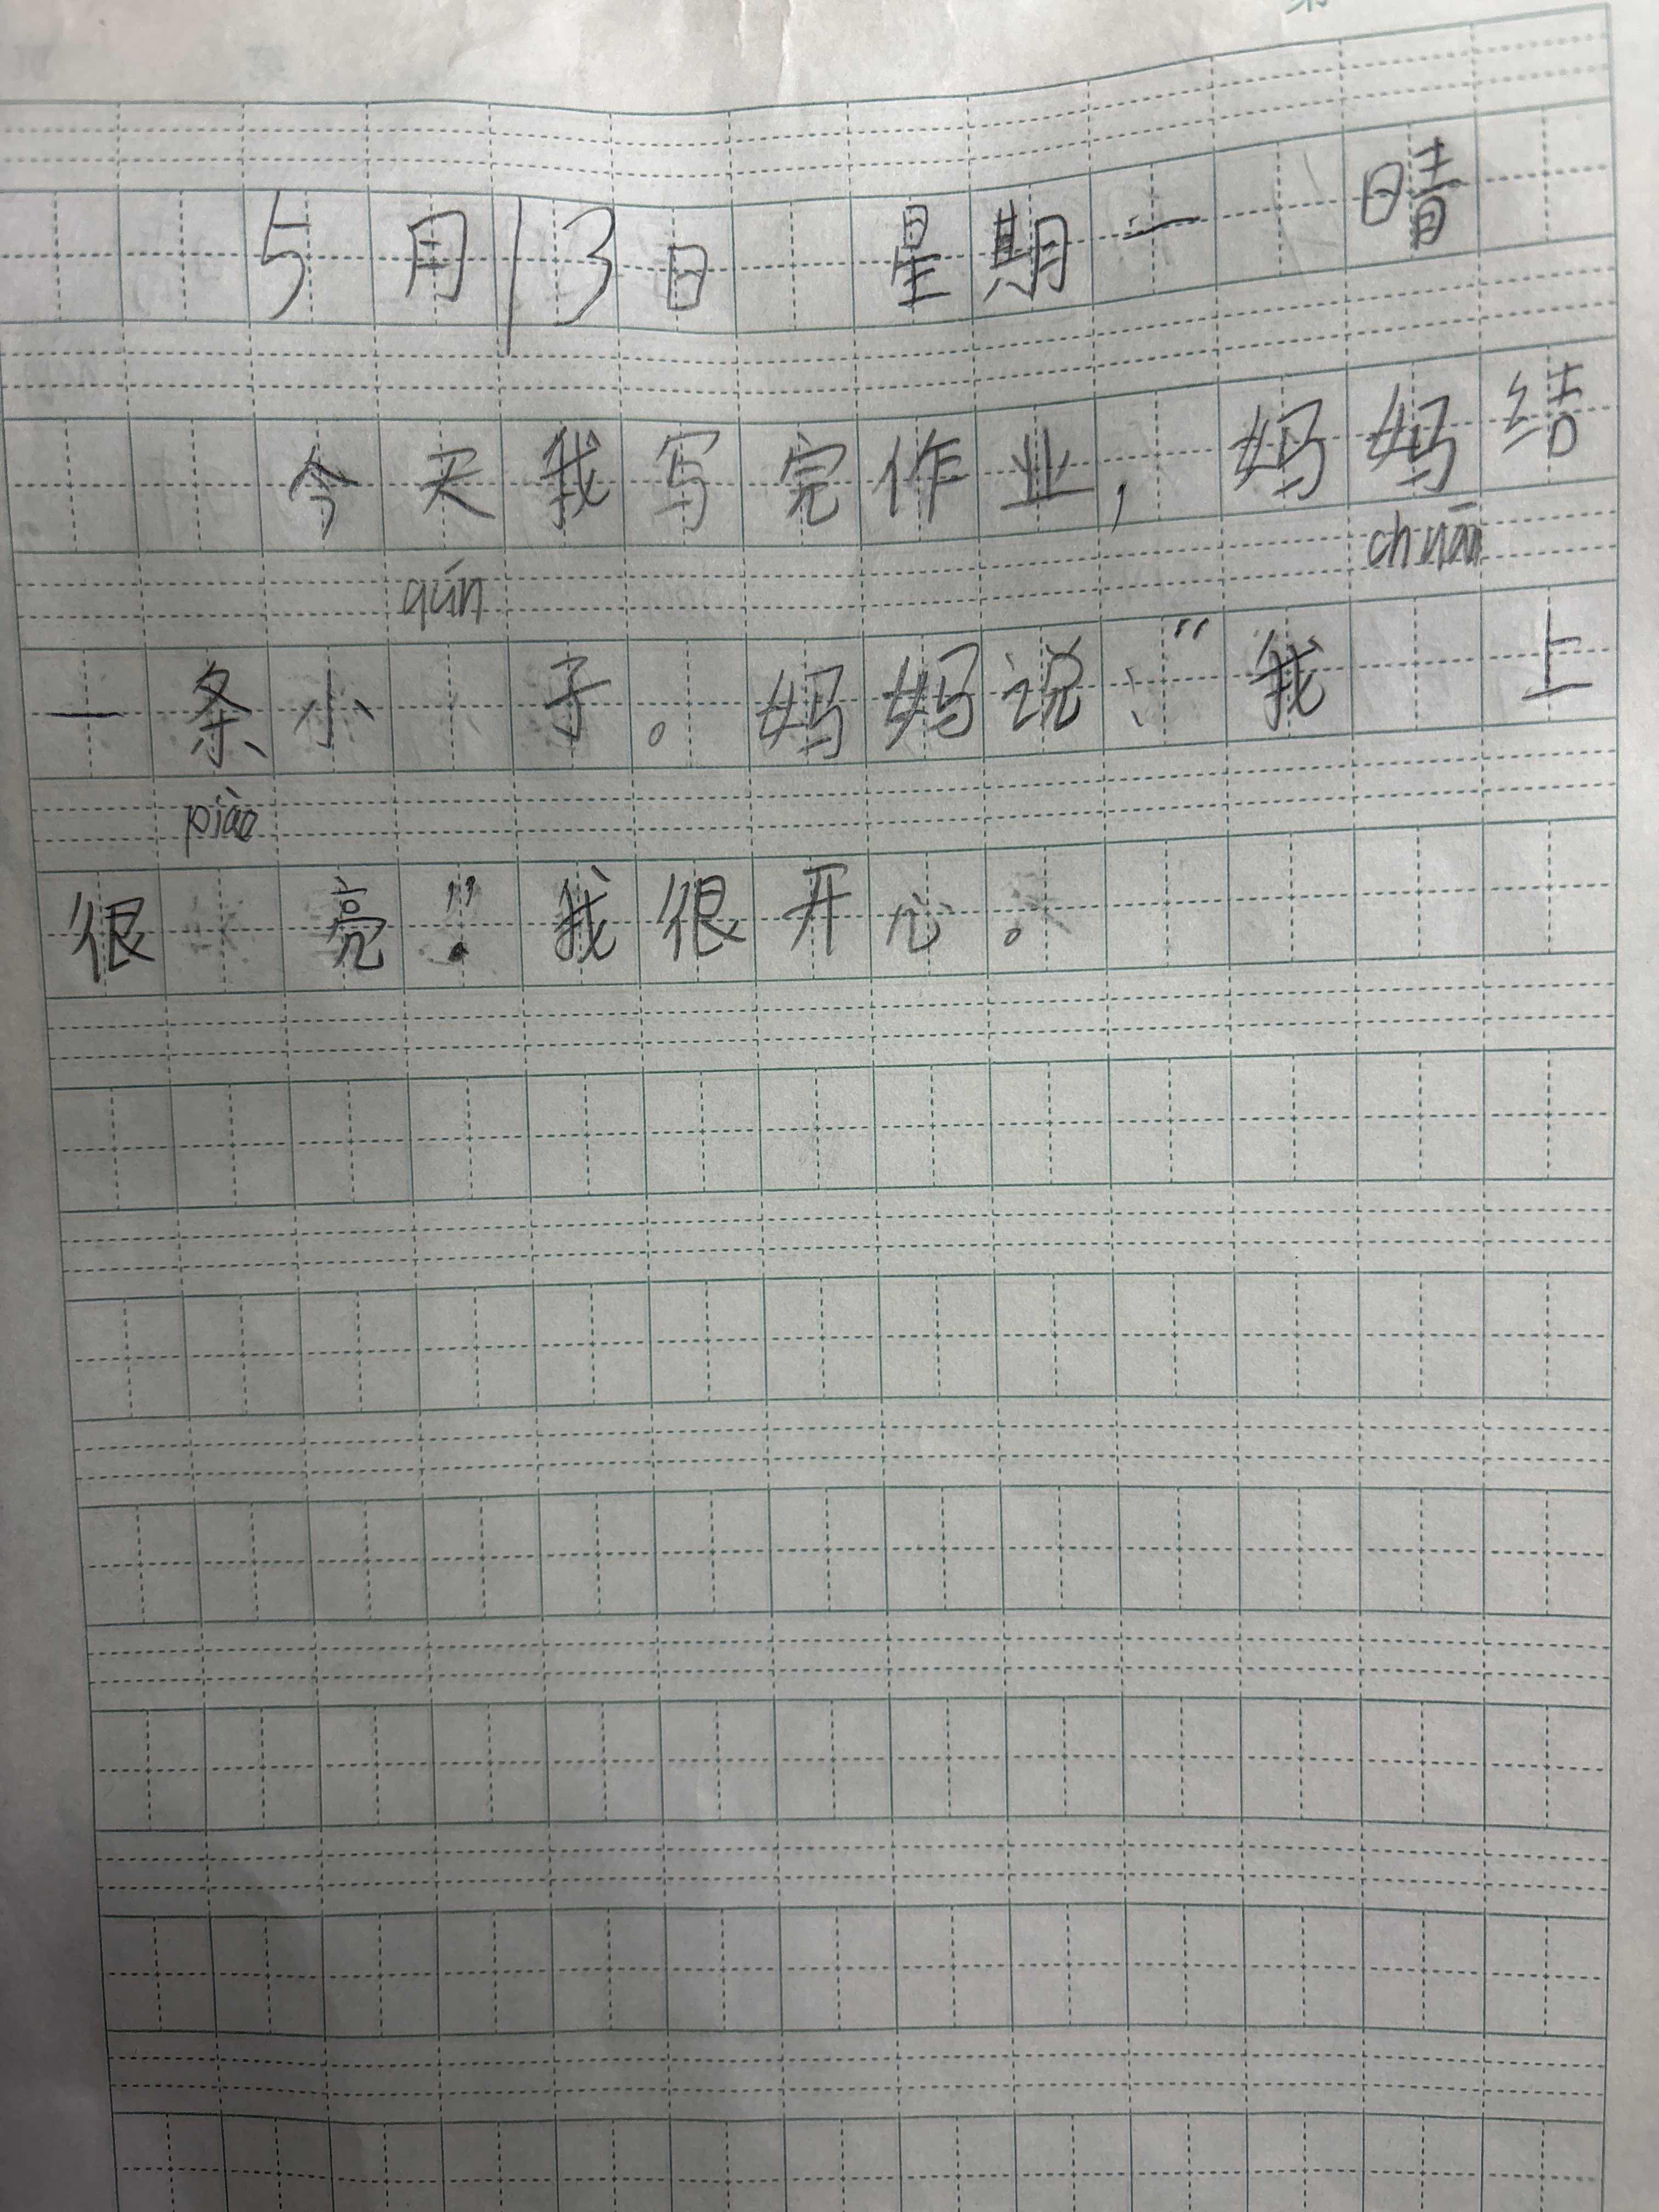 5月13日 星期一 晴
今天我写完作业，妈妈结
qún chuān
一条小 子。妈妈说：“我 上
piào
很 亮！”我很开心。